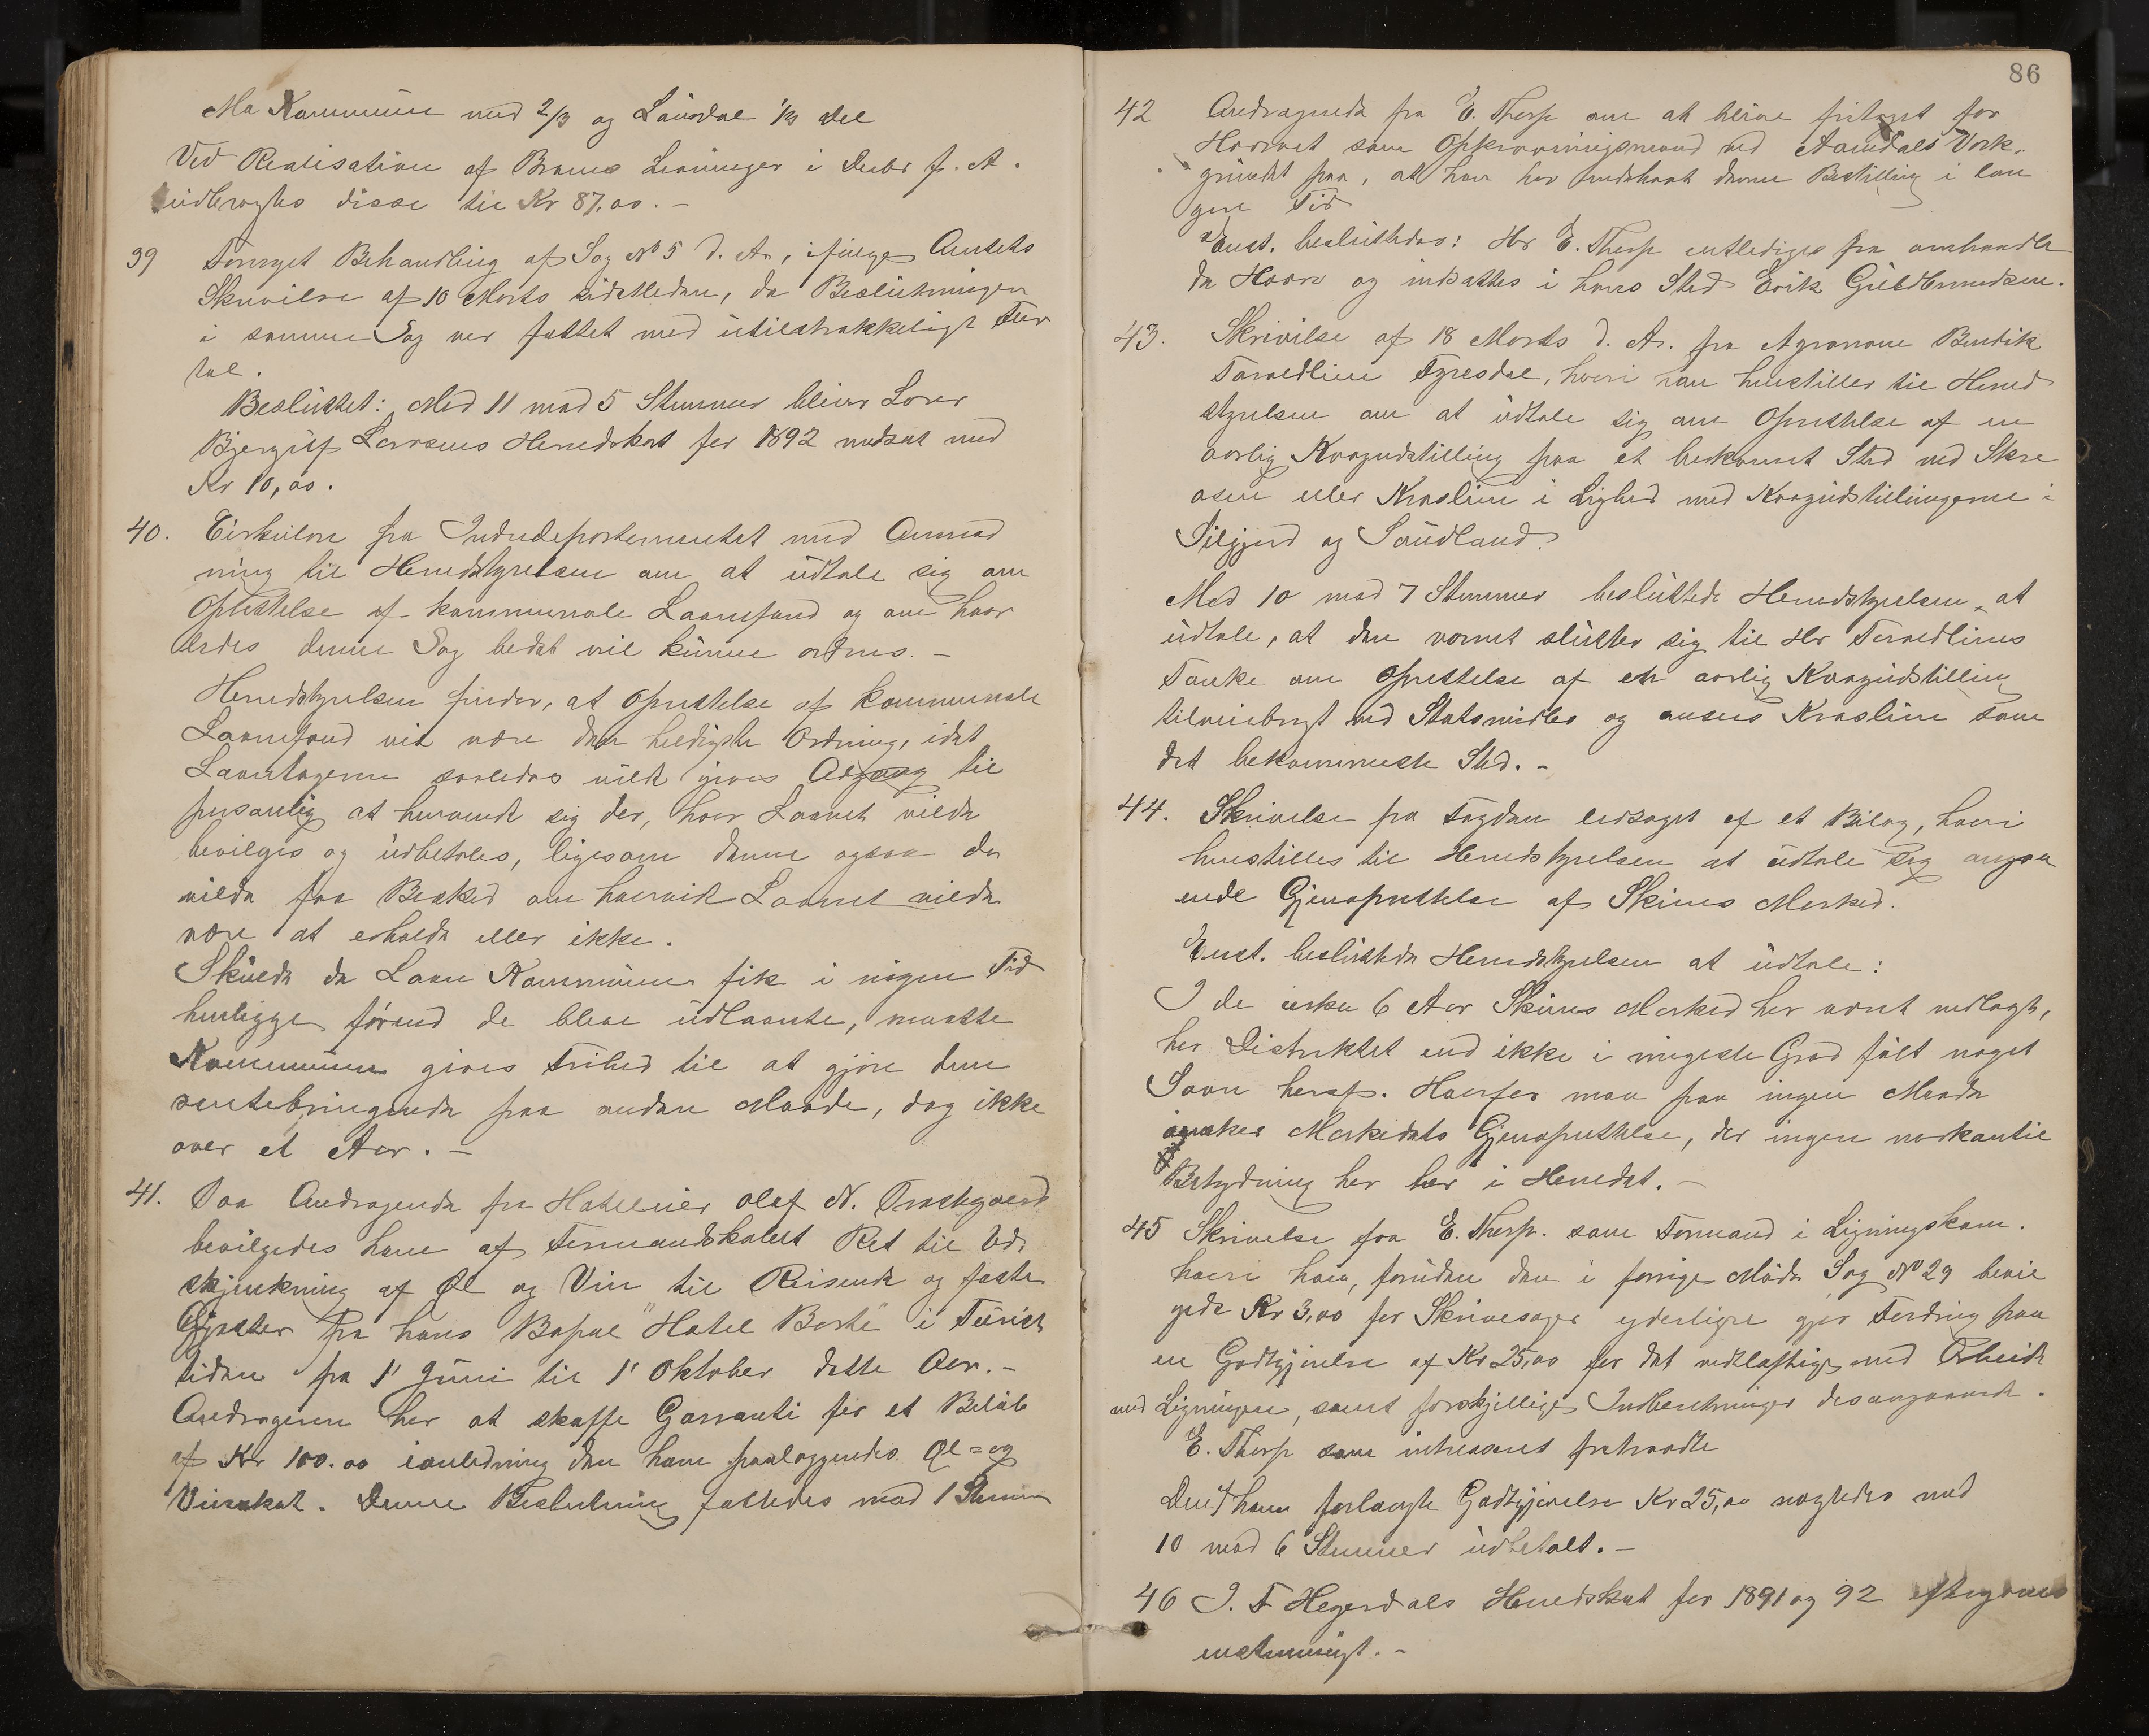 Mo Kommune med 2/3 og Laurdal 1/3 Del
Ved Realisation af Brams Levninger i Decbr f. A.
indbragtes disse til Kr 87,00. -
39 Fornyet Behandling af Sag No 5 d. A., ifølge Amtets
Skrivelse af 10 Marts sidstleden, da Beslutningen
i samme Sag var fattet med utilstrækkeligt Fler
tal.
Besluttet: Med 11 mod 5 Stemmer bliver Lærer
Bjergulf Larsens Herredskat for 1892 nedsat med
Kr 10,00.
40. Cirkulære fra Indredepartementet med Anmod
ning til Herredstyrelsen om at udtale sig om
Oprettelse af kommunale Laanefond og om hvor
ledes denne Sag bedst vil kunne ordnes. -
Herredstyrelsen finder, at Oprettelse af kommunale
Laanefond vil være den heldigste Ordning, idet
Laantagerne saaledes vilde gives Adgang til
personlig at henvende sig der, hvor Laanet vilde
bevilges og udbetales, ligesom denne ogsaa da
vilde faa Besked om hvorvidt Laanet vilde
være at erholde eller ikke.
Skulde de Laan Kommunen fik i nogen Tid
henligge førend de bleve udlaante, maatte
Kommunen gives Frihed til at gjøre dem
rentebringende paa anden Maade, dog ikke
over et Aar. -
41. Paa Andragende fra Hotelleier Olaf N.
bevilgedes ham af Formandskabet Ret til Ud-
skjænkning af Øl og Vin til Reisende og faste
Gjæster fra hans Bopæl "Hotel Borte" i Turist
tiden fra 1' Juni til 1' Oktober dette Aar. -
Andrageren har at skaffe Garranti for et Beløb
af Kr 100.00 i anledning den ham paalæggendes Øl= og
Vinskat. Denne Beslutning fattedes mod 1 Stemme
86
42 Andragende fra E. Thorp om at blive fritaget for
Hvervet som Opkrævningsmand ved Aamdals Værk,
grundet paa, at han har indehavt denne Bestilling i læn
gere Tid
Enst. besluttedes: Hr E. Thorp entlediges fra omhandle
de Hverv og indsattes i hans Sted Erik Guldbrandsen.
43. Skrivelse af 18 Marts d. Ar. fra Agronom Bendik
Tarvedlien Fyresdal, hvori han henstiller til Herred
styrelsen om at udtale sig om Oprettelse af en
aarlig Kvægudstilling paa et bekvemt Sted ved Skre
osen eller Kraslien i Lighed med Kvægudstillingerne i
Siljord og Saudland.
Med 10 mod 7 Stemmer besluttede Herredstyrelsen at
udtale, at den varmt slutter sig til Hr Tarvedliens
Tanke om Oprettelse af en aarlig Kvægudstilling
tilveiebragt ved Statsmidler og anses Kraslien som
det bekvemmeste Sted. -
44. Skrivelse fra Fogden ledsaget af et Bilag, hvori
henstilles til Herredstyrelsen at udtale sig angaa
ende Gjenoprettelse af Skiens Marked.
Enst. besluttede Herredstyrelsen at udtale:
I de cirka 6 Aar Skiens Marked har været nedlagt,
har Distriktet end ikke i ringeste Grad følt noget
Savn heraf. Hvorfor man paa ingen Maade
ønsker Markedets Gjenoprettelse, der ingen merkantil
Betydning har her i Herredet. -
45 Skrivelse fra E. Thorp. som Formand i Ligningskom.
hvori han, foruden den i forrige Møde Sag No 29 bevil
gede Kr 3,00 for Skrivesager yderligere gjør Fordring paa
en Godtgjørelse af Kr 25,00 for det vidtløftige med Arbeide
med Ligningen, samt forskjellige Indberetninger desangaaende.
E. Thorp som interesseret fratraadte
Den af ham forlangte Godtgjørelse Kr 25,00 nægtedes med
10 mod 6 Stemmer udbetalt. -
46 J. T Hegerdals Herredskat for 1891 og 92 eftergaves
enstemmigt. -